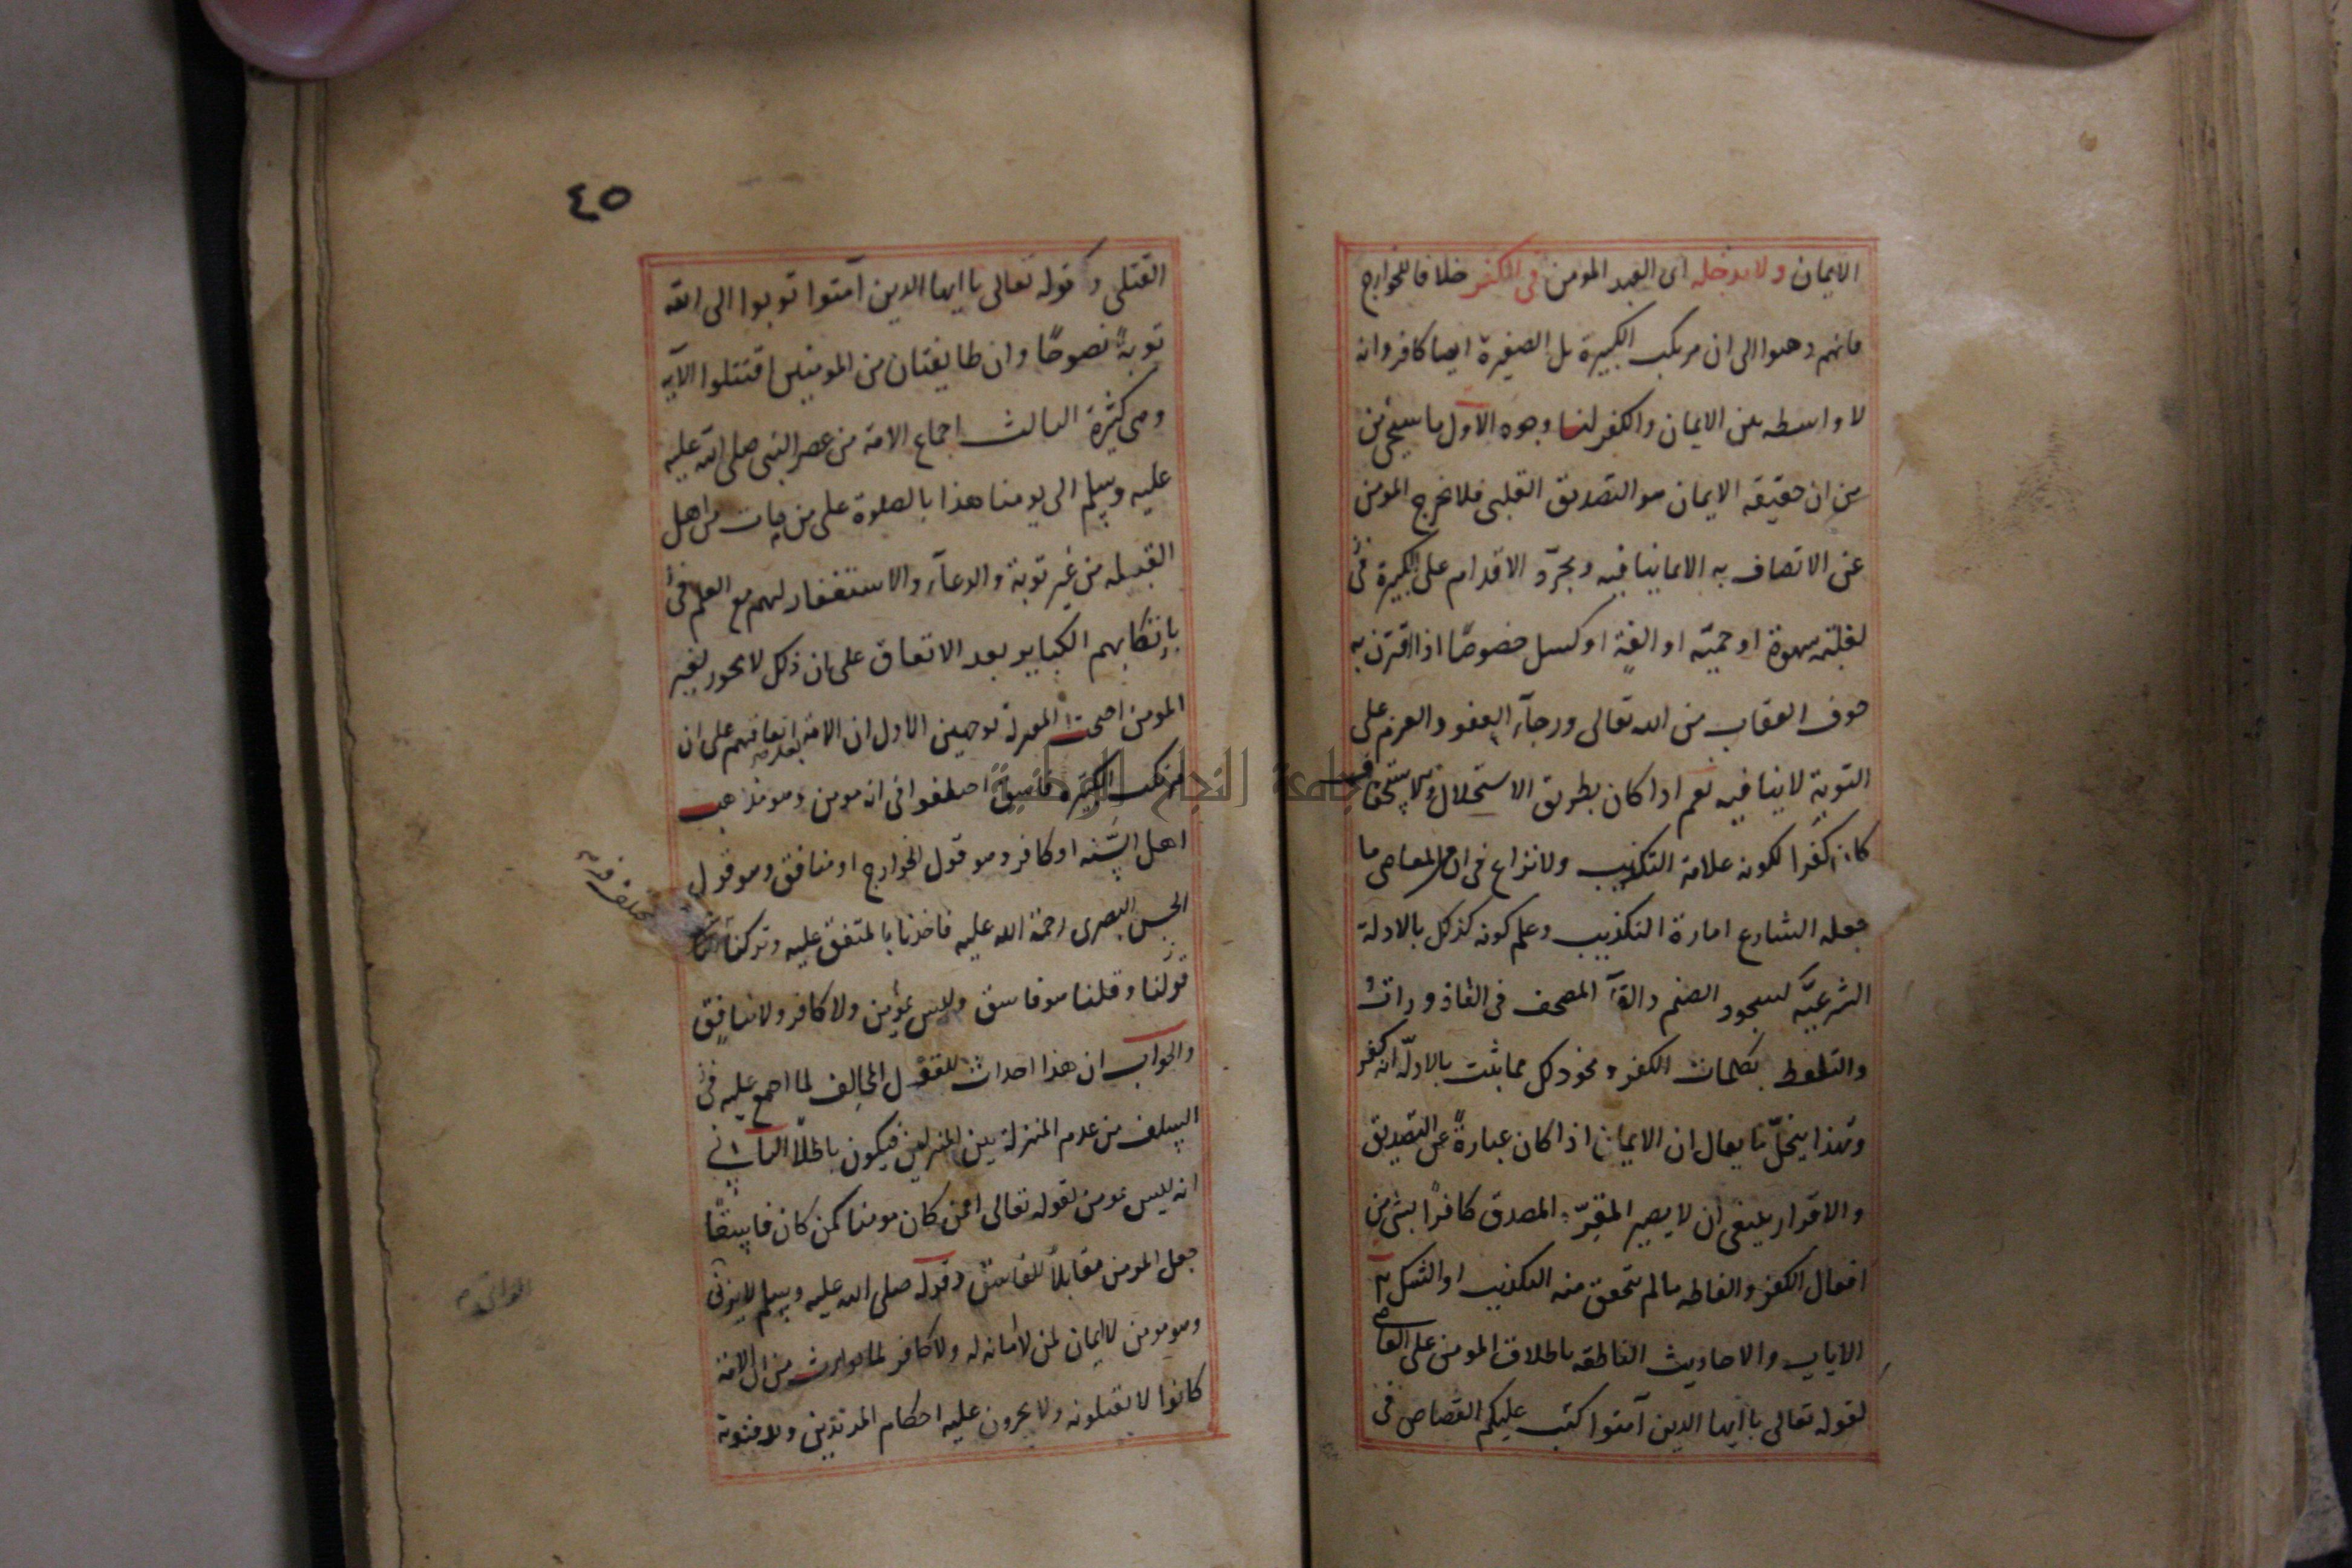 الايمان ولا يدخله اى العبد المومن فى الكفر خلافا للخوارج
فانهم ذهبوا الى ان مرتكب الكبيرة بل الصغيرة ايضا كافر وانه
لا واسطه بين الايمان والكفر لنا وجوه الاول ما سيجئ من
من ان حقيقه الايمان هو التصديق القلبى فلا يخرج المومن
عن الاتصاف به الا بما ينافيه ومجرّد الاقدام على الكبيرة
لغلبة شهوة او حميّة او انفة او كسل خصوصًا اذا اقترن به
خوف العقاب من الله تعالى ورجآء العفو والعزم على
التوبة لا ينافيه نعم اذا كان بطريق الاستحلال
كان كفرا لكونه علامة التكذيب ولا نزاع فى ان من المعاصى ما
جعله الشارع امارة التكذيب وعلم كونه كذلك بالادلة
الشرعيّه كسجود الصنم والقآء المصحف فى القاذورات
والتلفظ بكلمات الكفر ونحو ذلك مما يثبت بالادلّة انه كفر
وبهذا ينحلّ ما يقال ان الايمان اذا كان عبارةً عن التصديق
والاقرار ينبغى ان لا يصير المقرّ المصدق كافرًا بشئ من
افعال الكفر والفاظه ما لم يتحقق منه التكذيب او الشك
الايات والاحاديث الناطقه باطلاق المومن على العاصى
لقوله تعالى يا ايها الذين آمنوا كتب عليكم القصاص فى
٤٥
القتلى وكقوله تعالى يا ايها الذين آمنوا توبوا الى الله
توبةً نصوحًا وان طايفتان من المومنين اقتتلوا الآيه
وهى كثيرة الثالث اجماع الامة من عصر النبى صلى الله عليه
عليه وسلم الى يومنا هذا بالصلوة على من مات من اهل
القبله من غير توبة والدعآء والاستغفار لهم مع العلم
بارتكابهم الكباير بعد الاتفاق على ان ذلك لا يجوز لغير
المومن احتجت المعتزلة بوجهين الاول ان الامة بعد اتفاقهم على ان
مرتكب الكبيرة فاسق اختلفوا فى انه مومن وهو مذاهب
اهل السّنه او كافر وهو قول الخوارج او منافق وهو قول
الحسن البصرى رحمة الله عليه فاخذنا بالمتفق عليه وتركنا
قولنا وقلنا هو فاسق وليس بمؤمن ولا كافر ولا منافق
والجواب ان هذا احداث للقول المخالف لما اجمع عليه
السلف من عدم المنزلة بين المنزلتين فيكون باطلًا الثانى
انه ليس بمومن لقوله تعالى افمن كان مومنا كمن كان فاسقًا
جعل المومن مقابلًا للفاسق وقوله صلى الله عليه وسلم لا يزنى
وهو مومن لا ايمان لمن لا امانه له ولا كافر لما تواترت من ان الامة
كانوا لا يقتلونه ولا يجرون عليه احكام المرتدين ويدفنونه
جامعة النجاح الوطنية